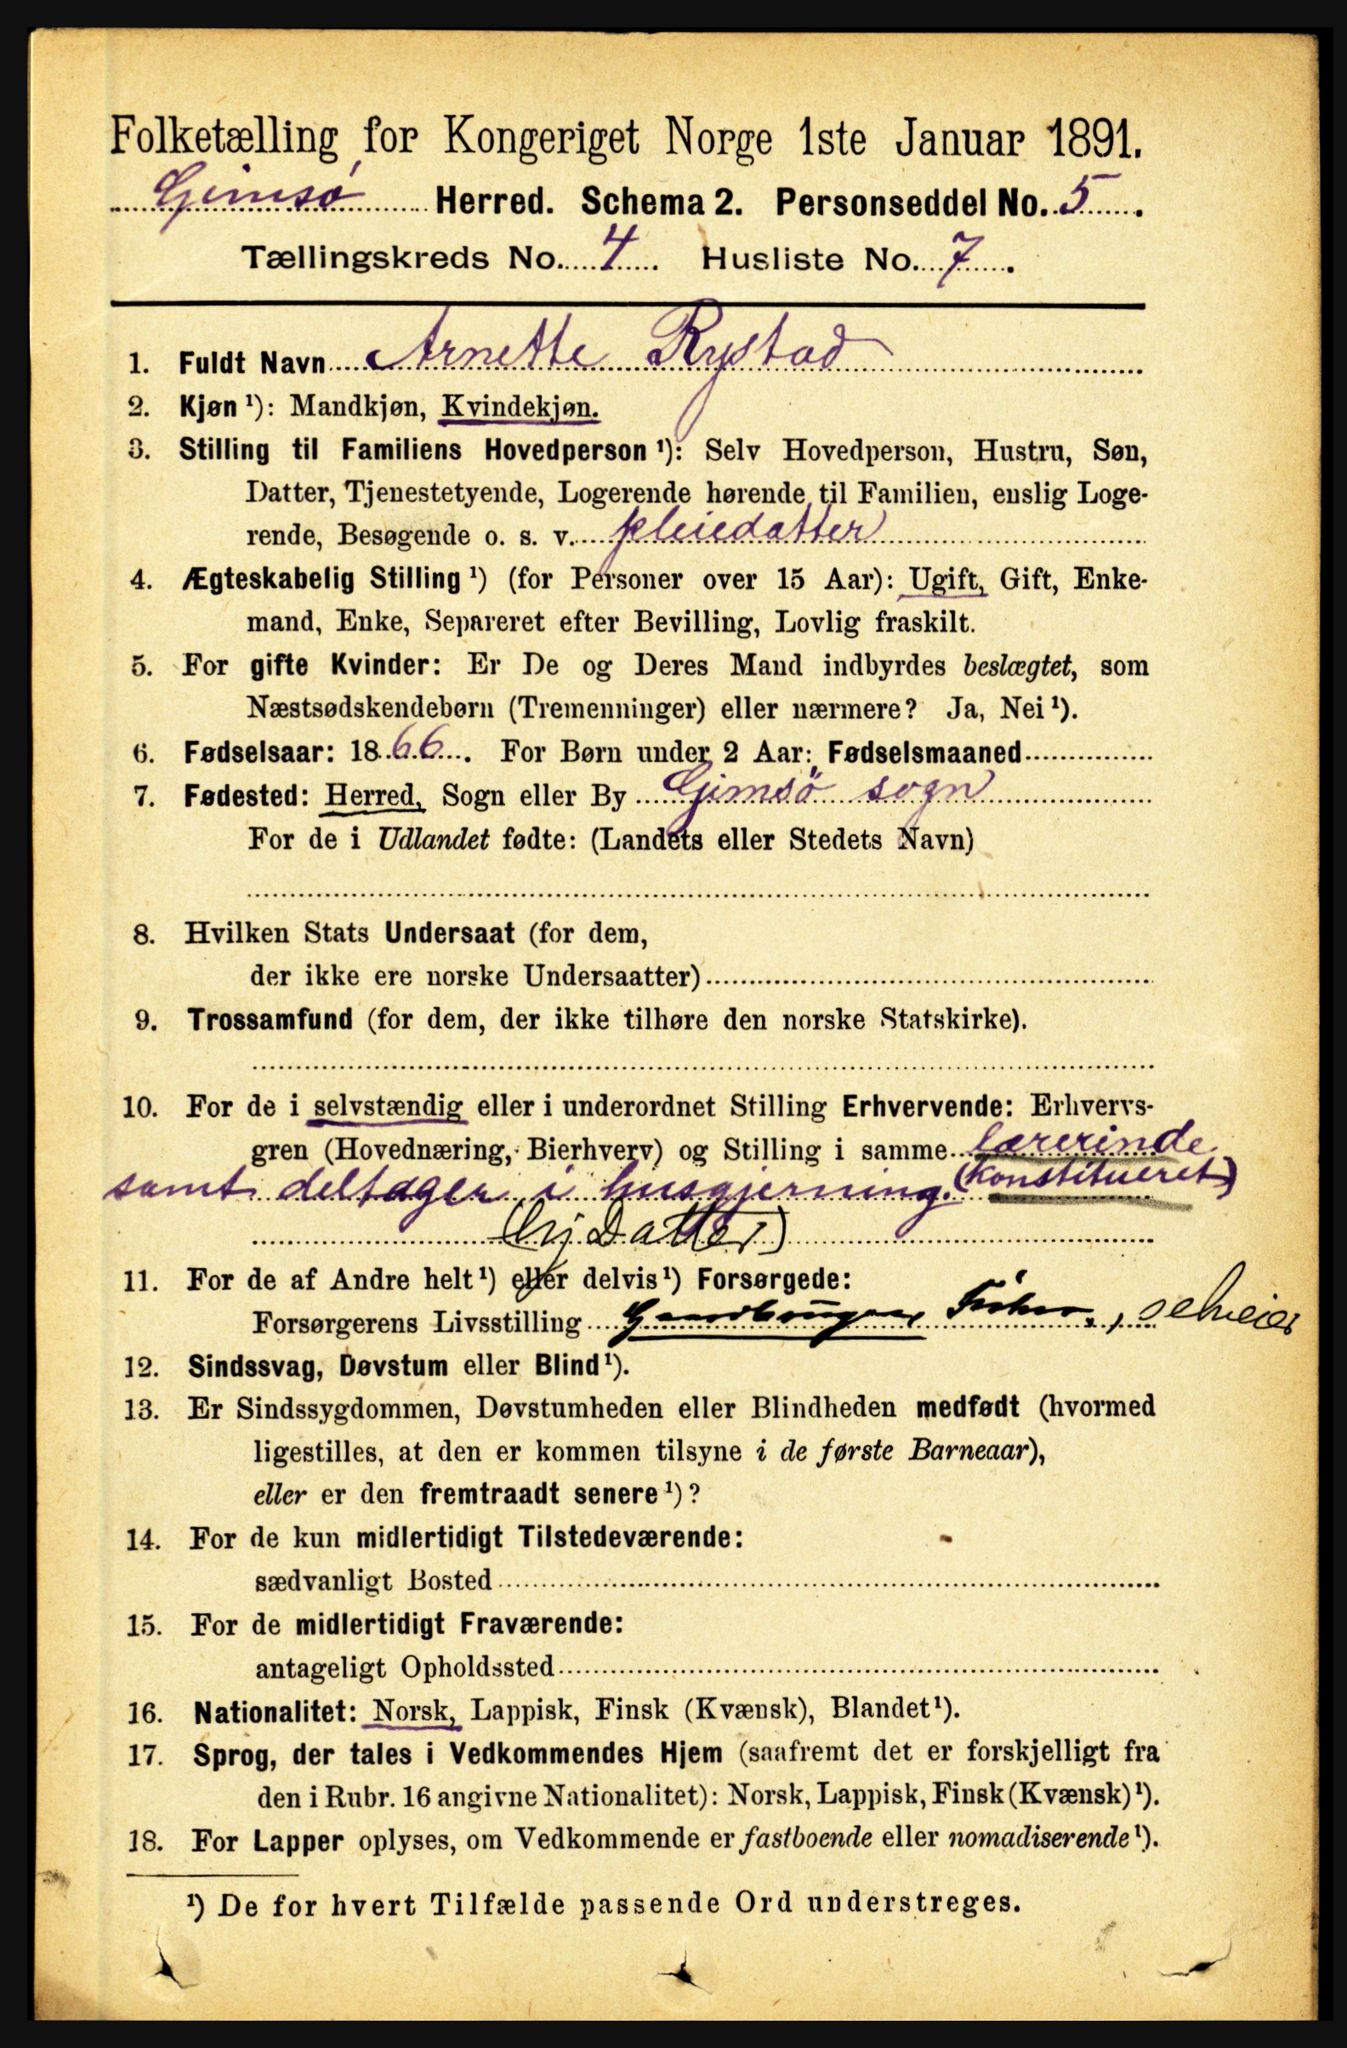 Folketælling for Kongeriget Norge 1ste Januar 1891.
Gimsø Herred. Schema 2. Personseddel No. 5.
Tællingskreds No. 4. Husliste No. 7.
1. Fuldt Navn Arnette Rystad
2. Kjøn ¹): Mandkjøn, Kvindekjøn.
3. Stilling til Familiens Hovedperson ¹): Selv Hovedperson, Hustru, Søn,
Datter, Tjenestetyende, Logerende hørende til Familien, enslig Loge-
rende, Besøgende o. s. v. pleiedatter
4. Ægteskabelig Stilling ¹) (for Personer over 15 Aar): Ugift, Gift, Enke-
mand, Enke, Separeret efter Bevilling, Lovlig fraskilt.
5. For gifte Kvinder: Er De og Deres Mand indbyrdes beslægtet, som
Næstsødskendebørn (Tremenninger) eller nærmere? Ja, Nei ¹).
6. Fødselsaar: 1866. For Børn under 2 Aar: Fødselsmaaned
7. Fødested: Herred, Sogn eller By Gimsø sogn
For de i Udlandet fødte: (Landets eller Stedets Navn)
8. Hvilken Stats Undersaat (for dem,
der ikke ere norske Undersaatter)
9. Trossamfund (for dem, der ikke tilhøre den norske Statskirke).
10. For de i selvstændig eller i underordnet Stilling Erhvervende: Erhvervs-
gren (Hovednæring, Bierhverv) og Stilling i samme lærerinde
(konstitueret)
samt deltager i husgjerning.
Datter)
11. For de af Andre helt ¹) eller delvis ¹) Forsørgede:
Forsørgerens Livsstilling Gaardbruger, Fisker, selveier
12. Sindssvag, Døvstum eller Blind ¹).
13. Er Sindssygdommen, Døvstumheden eller Blindheden medfødt (hvormed
ligestilles, at den er kommen tilsyne i de første Barneaar),
eller er den fremtraadt senere ¹)?
14. For de kun midlertidigt Tilstedeværende:
sædvanligt Bosted
15. For de midlertidigt Fraværende:
antageligt Opholdssted
16. Nationalitet: Norsk, Lappisk, Finsk (Kvænsk), Blandet ¹).
17. Sprog, der tales i Vedkommendes Hjem (saafremt det er forskjelligt fra
den i Rubr. 16 angivne Nationalitet): Norsk, Lappisk, Finsk (Kvænsk) ¹).
18. For Lapper oplyses, om Vedkommende er fastboende eller nomadiserende ¹).
¹) De for hvert Tilfælde passende Ord understreges.